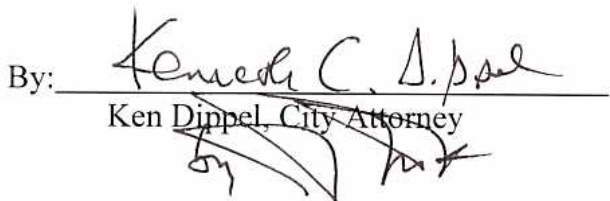 By: Kenneth C. Dippel
Ken Dippel, City Attorney
by